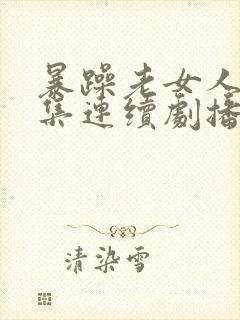 暴躁老女人
集連續劇播
清染雪